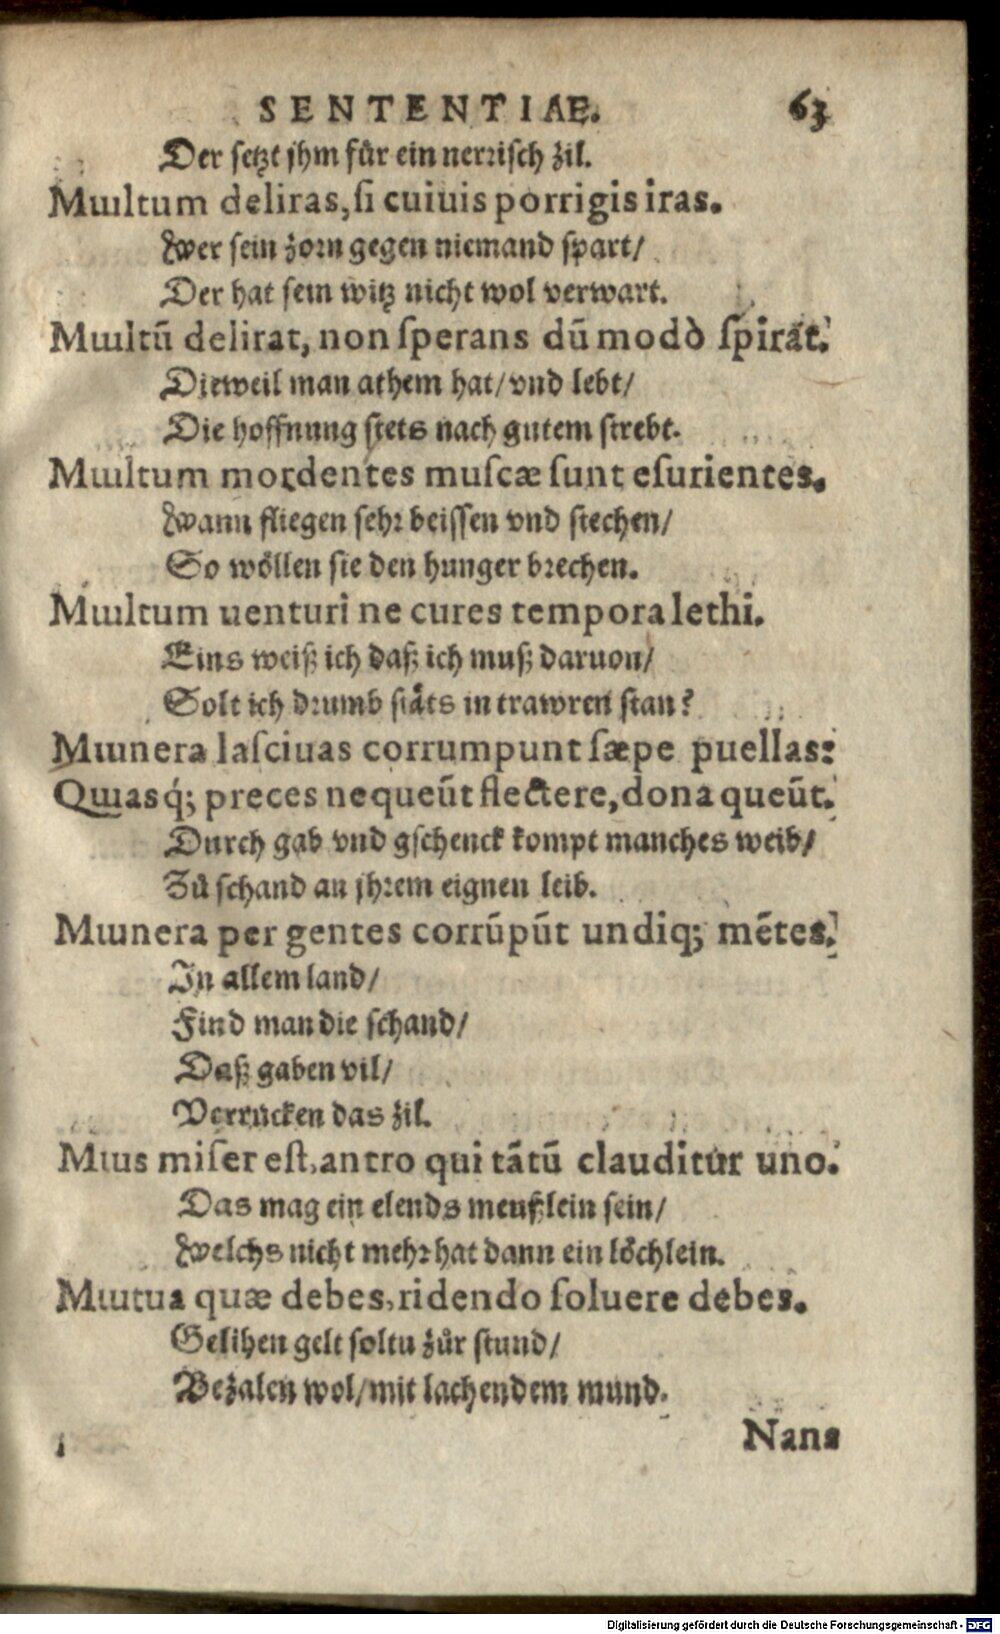 SENTENTIAE. 63
Der setzt jhm für ein nerrisch zil.
Multum deliras, si cuiuis porrigis iras.
Wer sein zorn gegen niemand spart/
Der hat sein witz nicht wol verwart.
Multū delirat, non sperans dū modò spirat.
Dieweil man athem hat/ vnd lebt/
Die hoffnung stets nach gutem strebt.
Multum mordentes muscæ sunt esurientes.
Wann fliegen sehr beissen vnd stechen/
So wöllen sie den hunger brechen.
Multum uenturi ne cures tempora lethi.
Eins weiß ich daß ich muß daruon/
Solt ich drumb stäts in trawren stan?
Munera lasciuas corrumpunt sæpe puellas:
Quasq́; preces nequeūt flectere, dona queūt.
Durch gab vnd gschenck kompt manches weib/
Zů schand an jhrem eignen leib.
Munera per gentes corrūpūt undiq; mētes.
In allem land/
Find man die schand/
Daß gaben vil/
Verrucken das zil.
Mus miser est, antro qui tātū clauditur uno.
Das mag ein elends meußlein sein/
Welchs nicht mehr hat dann ein löchlein.
Mutua quæ debes, ridendo soluere debes.
Gelihen gelt soltu zůr stund/
Bezalen wol/ mit lachendem mund.
Nans
Digitalisierung gefördert durch die Deutsche Forschungsgemeinschaft - DFG